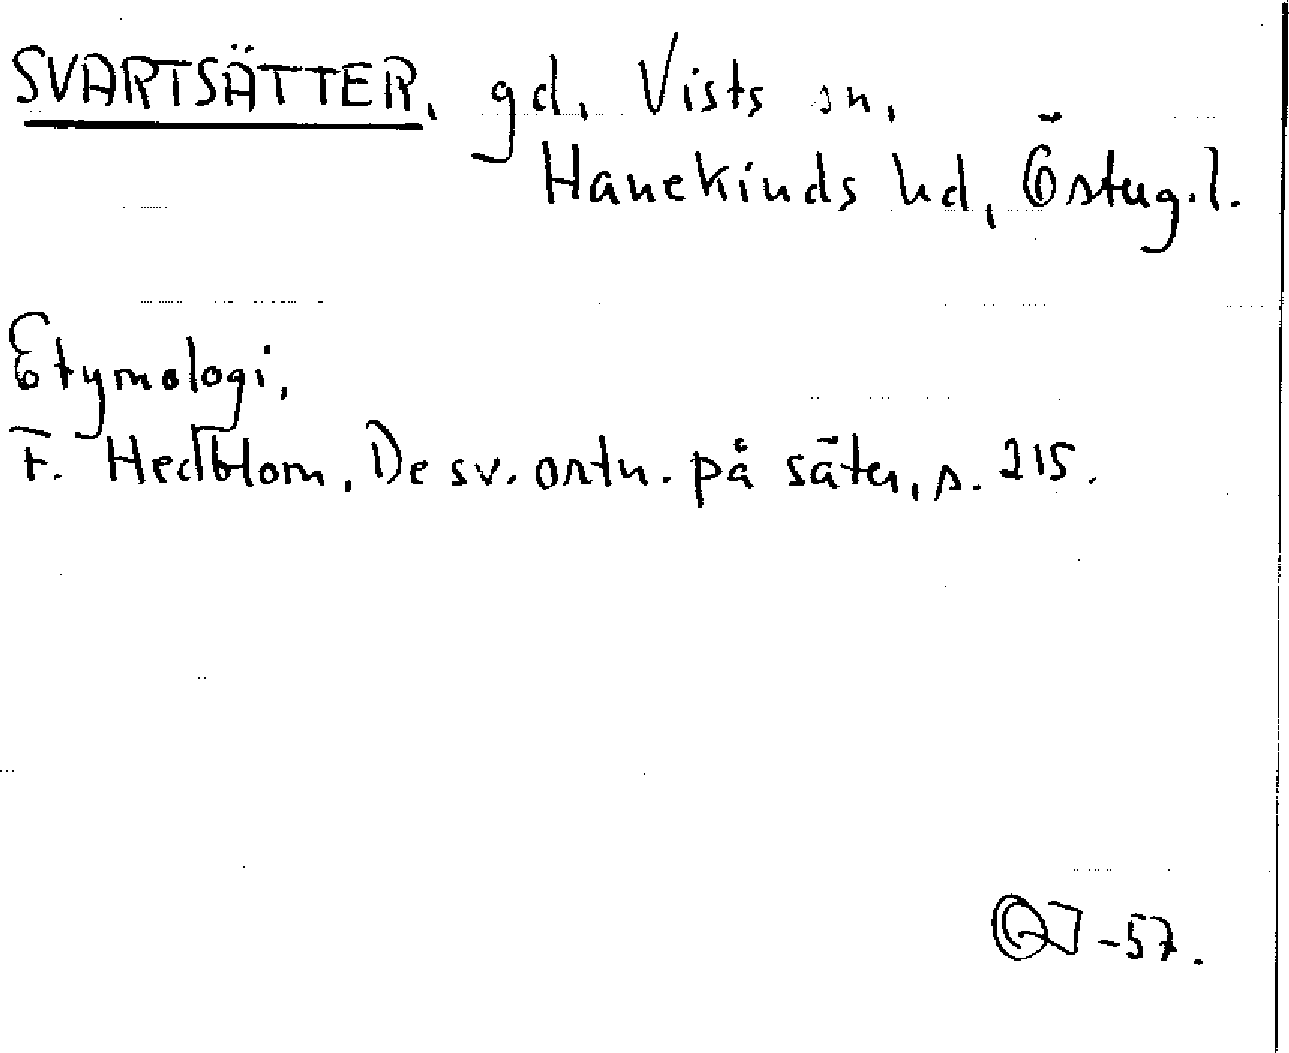 SVARTSÄTTER, gd, Vists sn,
Hanekinds hd, Österg.l.
Etymologi,
F. Hedblom, De sv. ortn. på säter, s. 215.
-57.